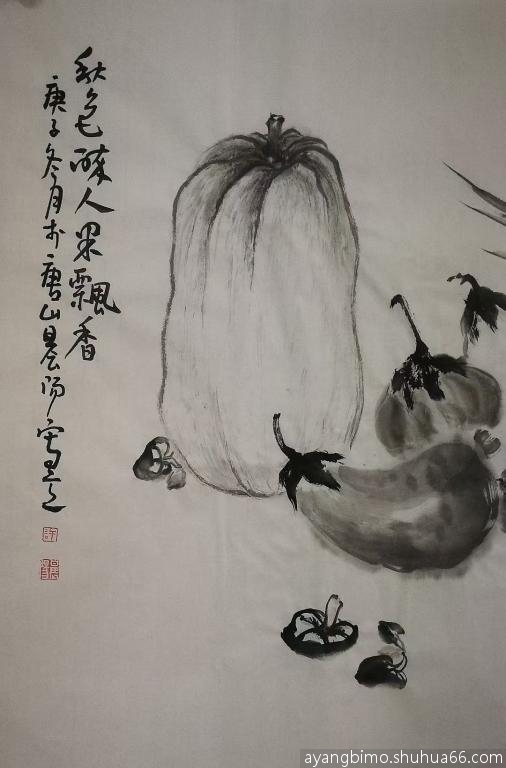 秋色醉人果飘香
庚子冬月於唐山晨阳写之
ayangbimo.shuhua66.com